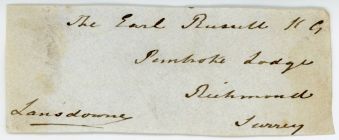 The Earl Russell K G
Pembroke Lodge
Richmond
Surrey
Lansdowne